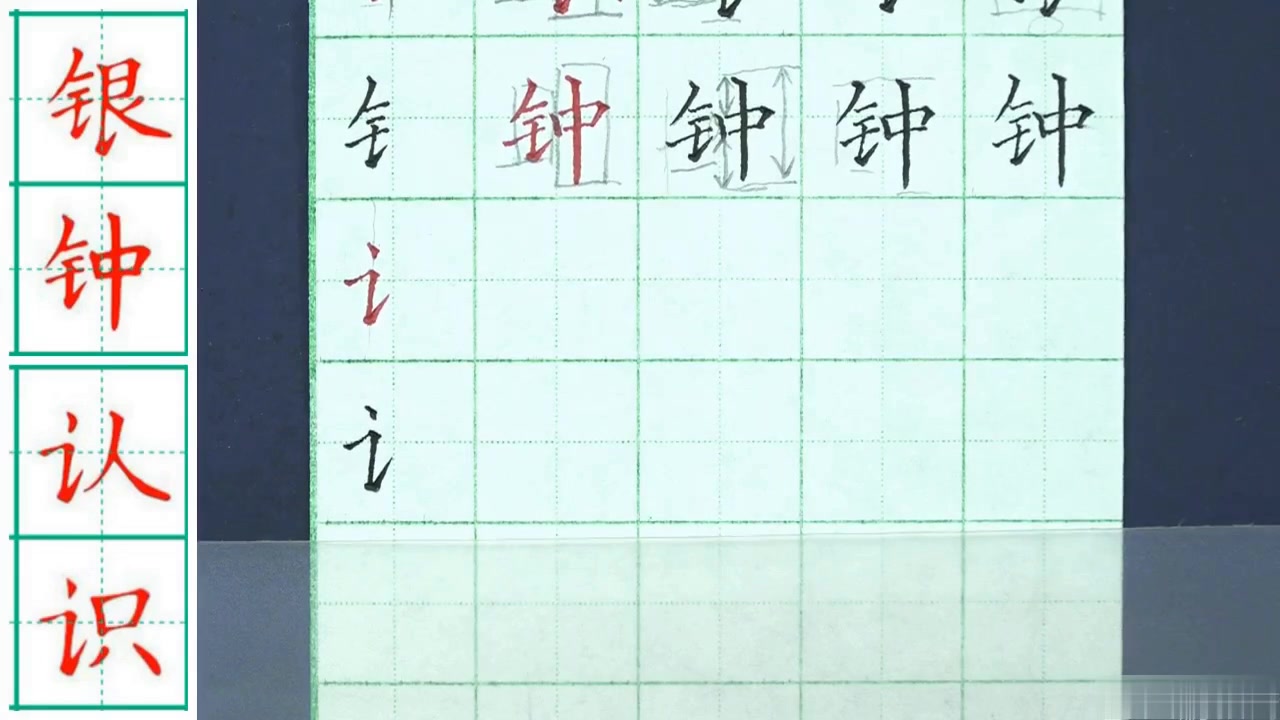 银
钟
认
识
钅 钟 钟 钟 钟
讠
讠